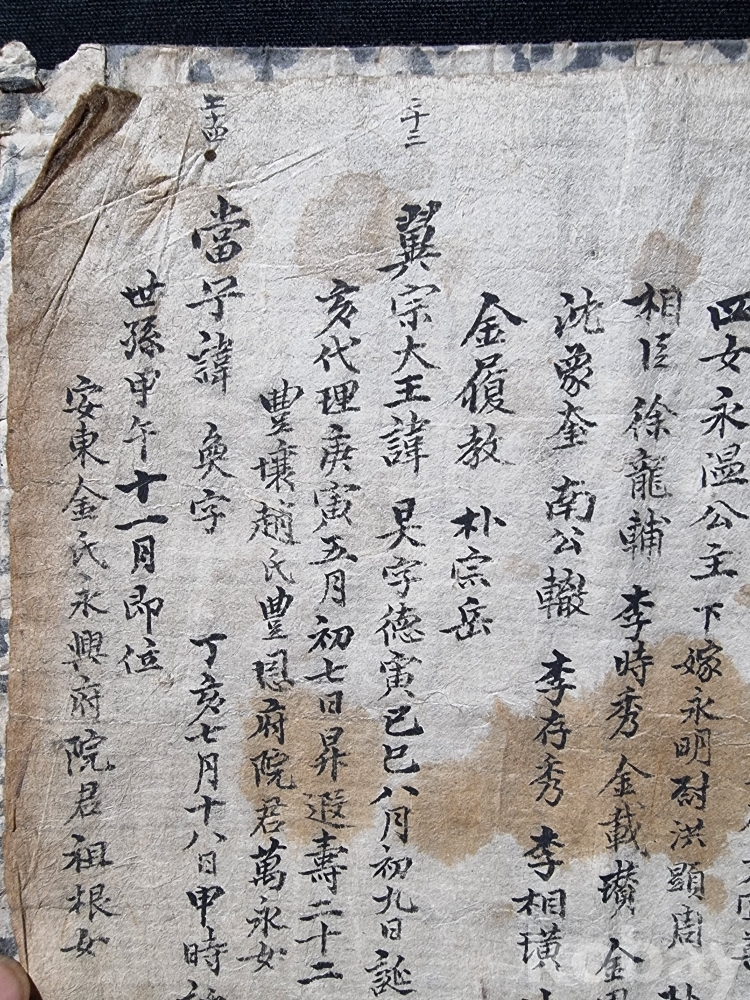 四女永温公主下嫁永明尉洪顯周
相臣 徐龍輔 李時秀 金載瓚 金
沈象奎 南公轍 李存秀 李相璜
金履教 朴宗岳
二十三
翼宗大王諱 旲字德寅己巳八月初九日誕
亥代理庚寅五月初七日昇遐壽二十二
豊壤趙氏豊恩府院君萬永女
二十四
當宁諱 奐字 丁亥七月十八日申時誕
世孫甲午十一月即位
安東金氏永興府院君祖根女